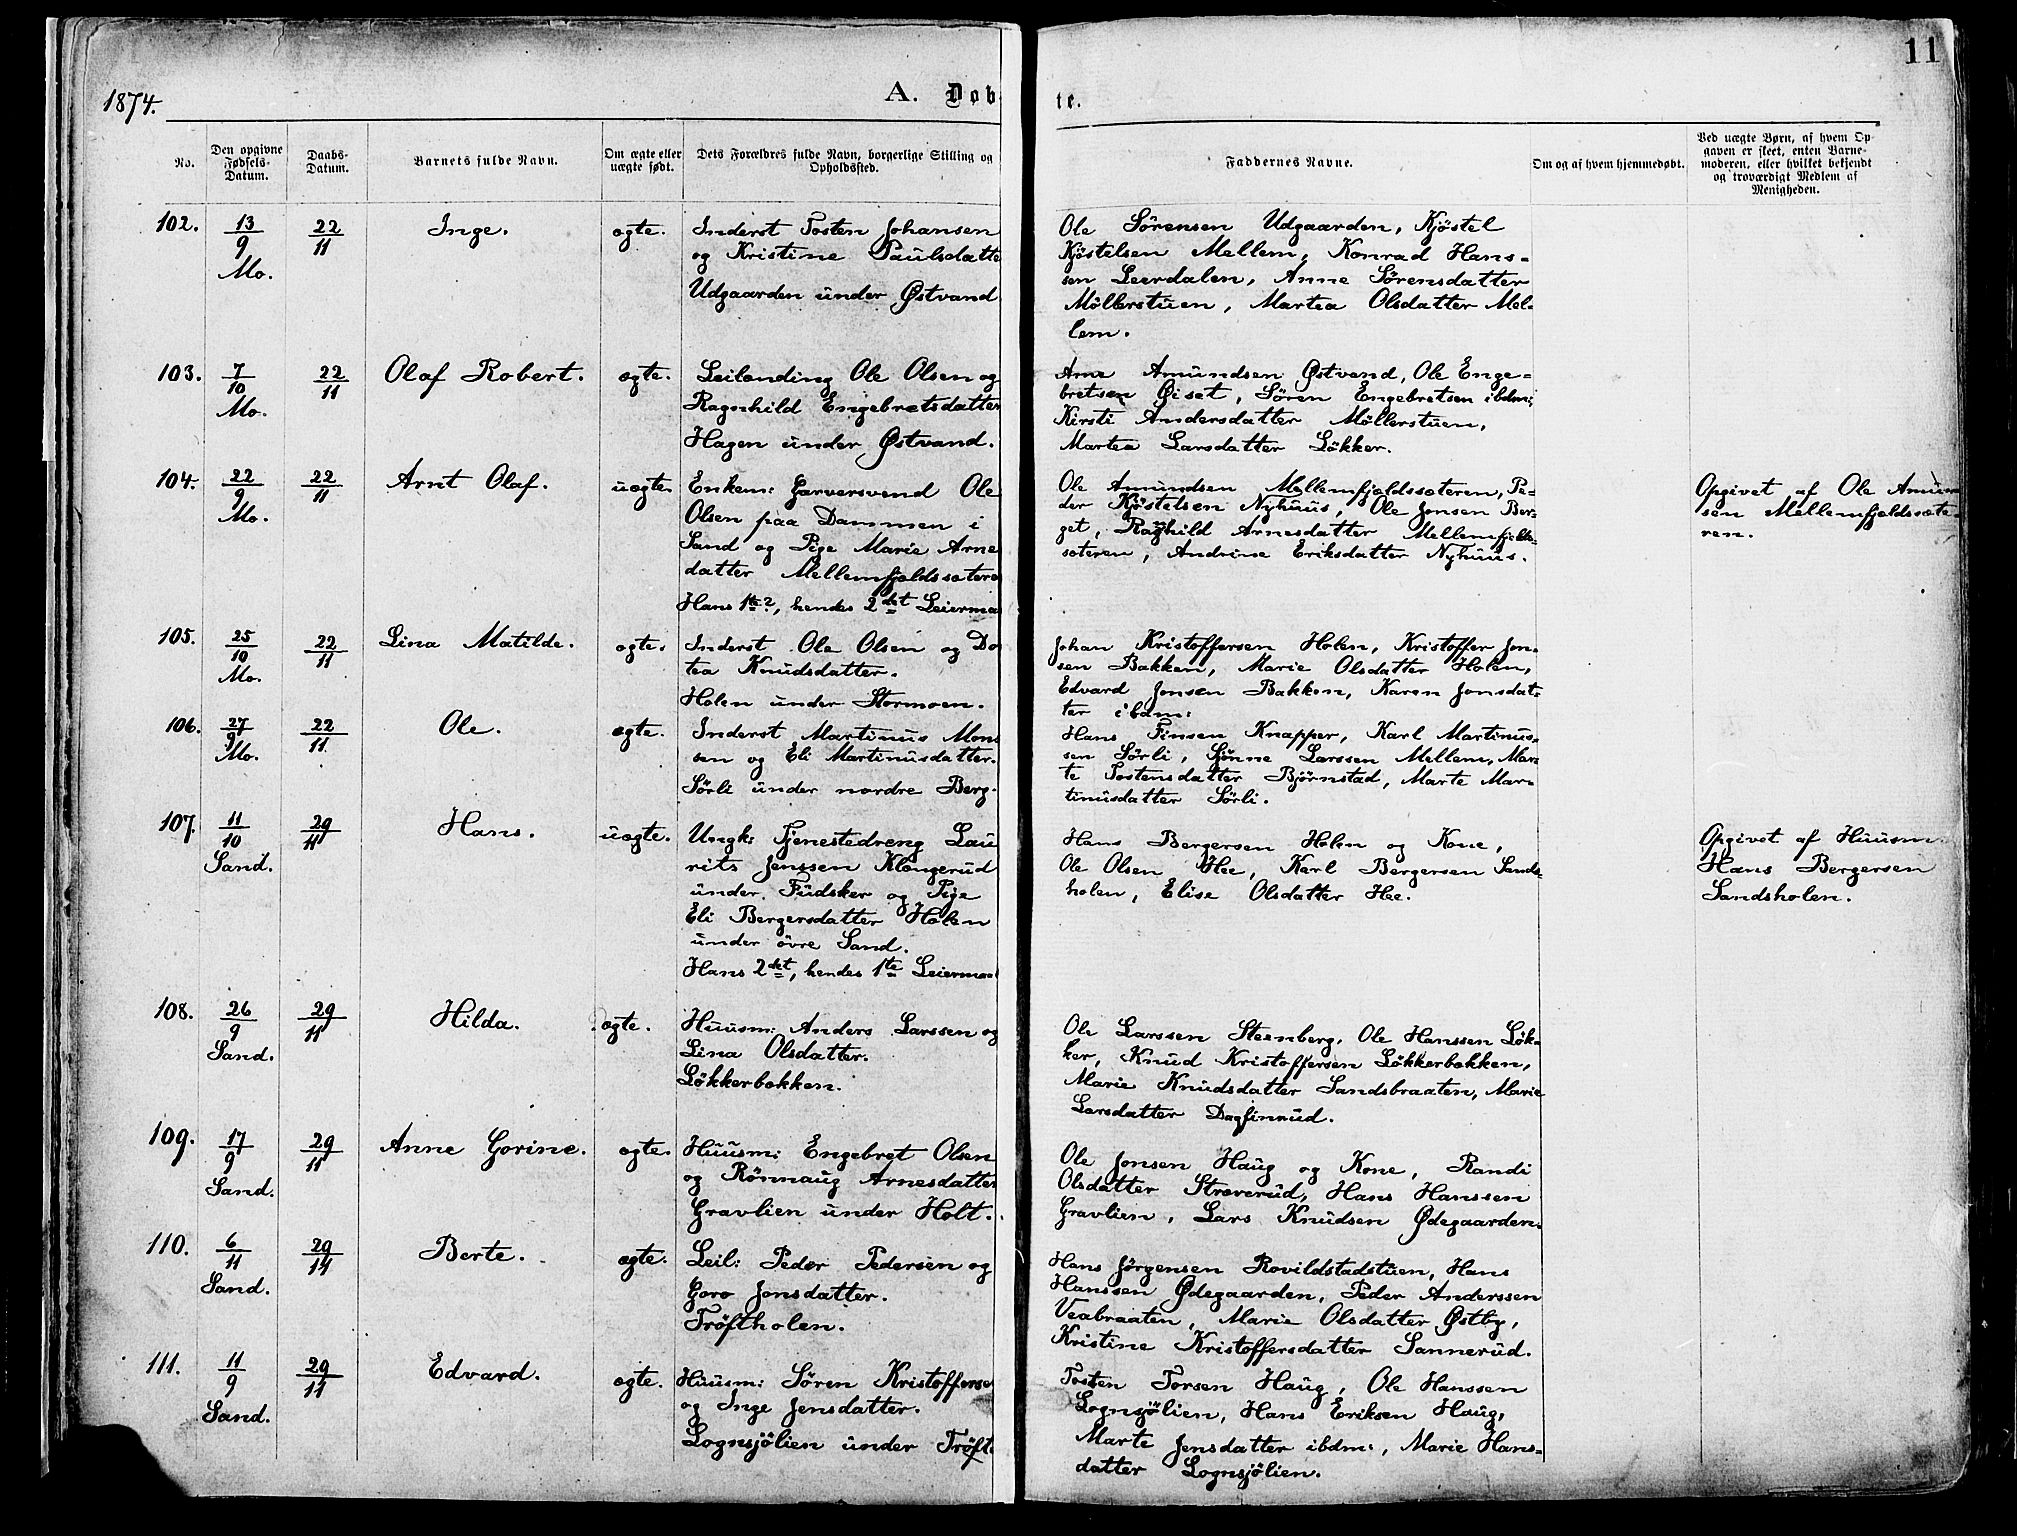 11
1874.
A. Døb-
te.
No.
Den opgivne Fødsels-Datum.
Daabs-Datum.
Barnets fulde Navn.
Om ægte eller uægte født.
Dets Forældres fulde Navn, borgerlige Stilling og Opholdssted.
Faddernes Navne.
Om og af hvem hjemmedøbt.
Ved uægte Børn, af hvem Op-
gaven er skeet, enten Barne-
moderen, eller hvilket bekjendt
og troværdigt Medlem af
Menigheden.
102. 13/9 Mo. 22/11 Inge. ægte.
Inderst Tosten Johansen
og Kristine Paulsdatte
Udgaarden under Østvand
Ole Sørensen Udgaarden, Kjøstel
Kjøstelsen Mellem, Konrad Hans-
sen Leerdalen, Anne Sørensdatter
Møllerstuen, Martea Olsdatter Mel-
lem.
103. 7/10 Mo. 22/11 Olaf Robert. ægte.
Leilending Ole Olsen og
Ragnhild Engebretsdatter
Hagen under Østvand.
Arne Amundsen Østvand, Ole Enge-
bretsen Øiset, Søren Engebretsen ibdm;
Kirsti Andersdatter Møllerstuen,
Martea Larsdatter Løkker.
104. 22/9 Mo. 22/11 Arnt Olaf. uægte.
Enkem: Garversvend Ole
Olsen paa Dammen i
Sand og Pige Marie Arne
datter Mellemfjeldssætere
Hans 1te?, hendes 2det Leierma
Ole Amundsen Mellemfjeldssæteren, Pe-
der Kjøstelsen Nyhuus, Ole Jonsen Ber-
get, Ragnhild Arnesdatter Mellemfjelds-
sæteren, Andrine Eriksdatter Nyhuus.
Opgivet af Ole Amun
sen Mellemfjeldssæte-
ren.
105. 25/10 Mo. 22/11 Lina Matilde. ægte.
Inderst Ole Olsen og Do
tea Knudsdatter.
Holen under Stormoen.
Johan Kristoffersen Holen, Kristoffer Jon-
sen Bakken, Marie Olsdatter Holen,
Edvard Jonsen Bakken, Karen Jonsdat-
ter ibdm:
106. 27/9 Mo. 22/11 Ole. ægte.
Inderst Martinus Mons
sen og Eli Martinusdatter.
Sørli under nordre Berg.
Hans Finsen Knapper, Karl Martinus-
sen Sørli, Gunne Larssen Mellem, Mar-
te Tostensdatter Bjørnstad, Marte Mar-
tinusdatter Sørli.
107. 11/10 Sand. 29/11 Hans. uægte.
Ungk: Tjenestedreng Lau
rits Jenssen Klongerud
under Fudsker og Pige
Eli Bergersdatter Holen
under øvre Sand.
Hans 2det, hendes 1te Leiermaal
Hans Bergersen Holen og Kone,
Ole Olsen Hee, Karl Bergersen Sands-
holen, Elise Olsdatter Hee.
Opgivet af Huusm.
Hans Bergersen
Sandsholen.
108. 26/9 Sand. 29/11 Hilda. ægte.
Huusm: Anders Larssen og
Lina Olsdatter.
Løkkerbakken.
Ole Larssen Steenberg, Ole Hanssen Løk-
ker, Knud Kristoffersen Løkkerbakken,
Marie Knudsdatter Sandsbraaten, Marie
Larsdatter Dagfinrud.
109. 17/9 Sand. 29/11 Anne Gorine. ægte.
Huusm: Engebret Olsen
og Rønnaug Arnesdatter
Gravlien under Holt.
Ole Jonsen Haug og Kone, Randi
Olsdatter Strøverud, Hans Hanssen
Gravlien, Lars Knudsen Ødegaarden.
110. 6/11 Sand. 29/11 Berte. ægte.
Leil: Peder Pedersen og
Goro Jonsdatter.
Trøftholen.
Hans Jørgensen Rovildstadstuen, Hans
Hanssen Ødegaarden, Peder Anderssen
Veabraaten, Marie Olsdatter Østby,
Kristine Kristoffersdatter Sannerud.
111. 11/9 Sand. 29/11 Edvard. ægte.
Huusm: Søren Kristofferse
og Inge Jensdatter.
Lognsjølien under Trøft
Tosten Torsen Haug, Ole Hanssen
Lognsjølien, Hans Eriksen Haug,
Marte Jensdatter ibdm:, Marie Hans-
datter Lognsjølien.